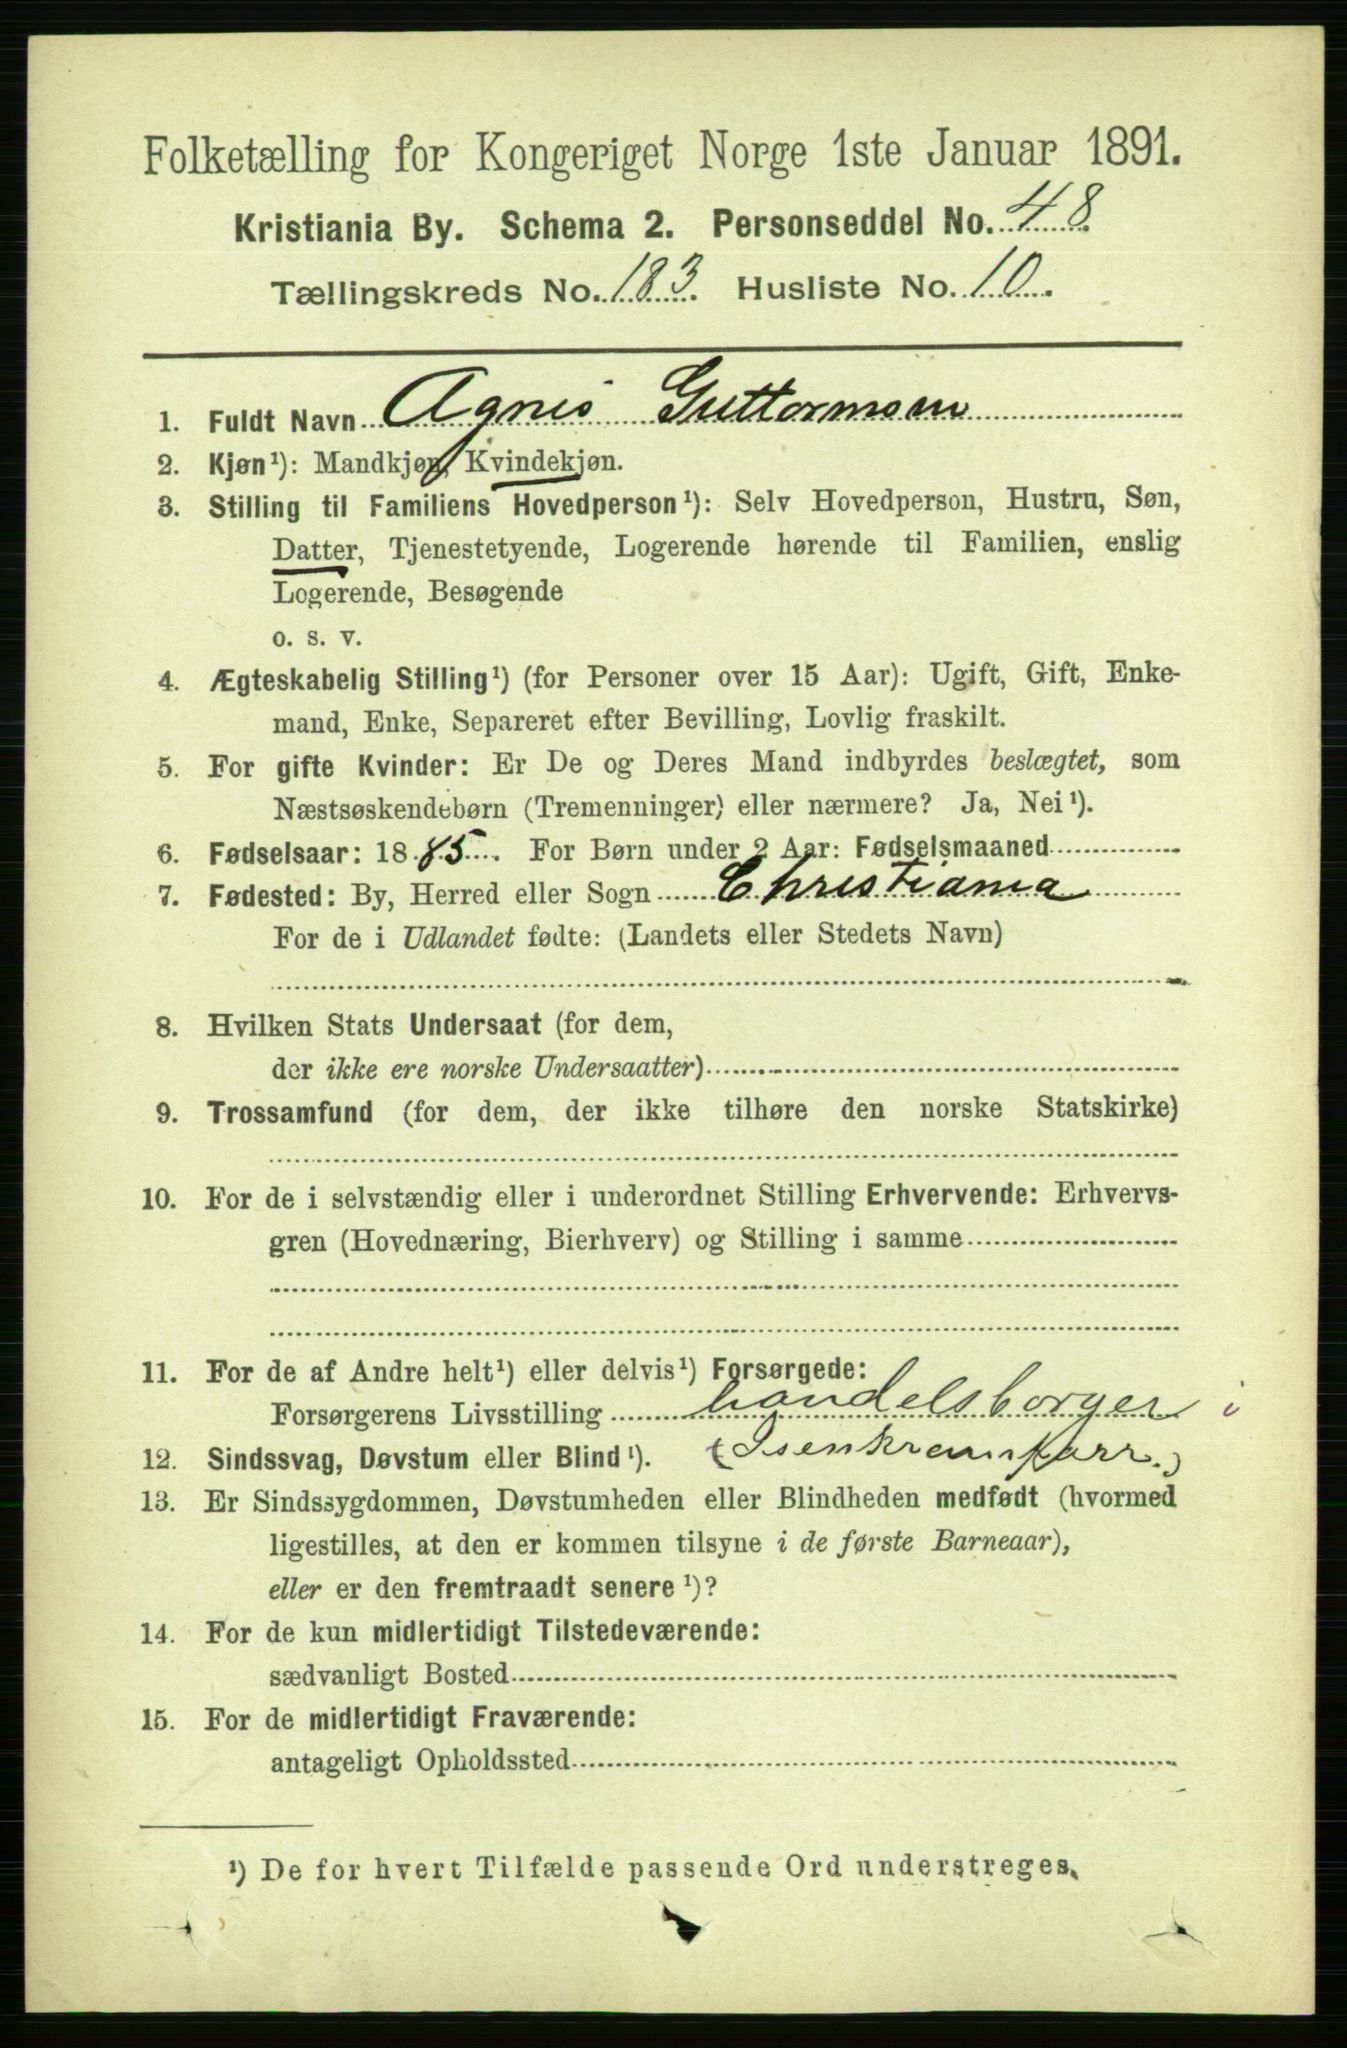 Folketælling for Kongeriget Norge 1ste Januar 1891.
Kristiania By. Schema 2. Personseddel No. 48
Tællingskreds No. 183. Husliste No. 10.
1. Fuldt Navn Agnes Guttormsen
2. Kjøn¹): Mandkjøn, Kvindekjøn.
3. Stilling til Familiens Hovedperson¹): Selv Hovedperson, Hustru, Søn,
Datter, Tjenestetyende, Logerende hørende til Familien, enslig
Logerende, Besøgende
o. s. v.
4. Ægteskabelig Stilling¹) (for Personer over 15 Aar): Ugift, Gift, Enke-
mand, Enke, Separeret efter Bevilling, Lovlig fraskilt.
5. For gifte Kvinder: Er De og Deres Mand indbyrdes beslægtet, som
Næstsøskendebørn (Tremenninger) eller nærmere? Ja, Nei¹).
6. Fødselsaar: 1885. For Børn under 2 Aar: Fødselsmaaned
7. Fødested: By, Herred eller Sogn Christiania
For de i Udlandet fødte: (Landets eller Stedets Navn)
8. Hvilken Stats Undersaat (for dem,
der ikke ere norske Undersaatter)
9. Trossamfund (for dem, der ikke tilhøre den norske Statskirke)
10. For de i selvstændig eller i underordnet Stilling Erhvervende: Erhvervs-
gren (Hovednæring, Bierhverv) og Stilling i samme
11. For de af Andre helt¹) eller delvis¹) Forsørgede:
Forsørgerens Livsstilling handelsborger i
12. Sindssvag, Døvstum eller Blind¹). (Isenkramforr.)
13. Er Sindssygdommen, Døvstumheden eller Blindheden medfødt (hvormed
ligestilles, at den er kommen tilsyne i de første Barneaar),
eller er den fremtraadt senere¹)?
14. For de kun midlertidigt Tilstedeværende:
sædvanligt Bosted
15. For de midlertidigt Fraværende:
antageligt Opholdssted
¹) De for hvert Tilfælde passende Ord understreges.